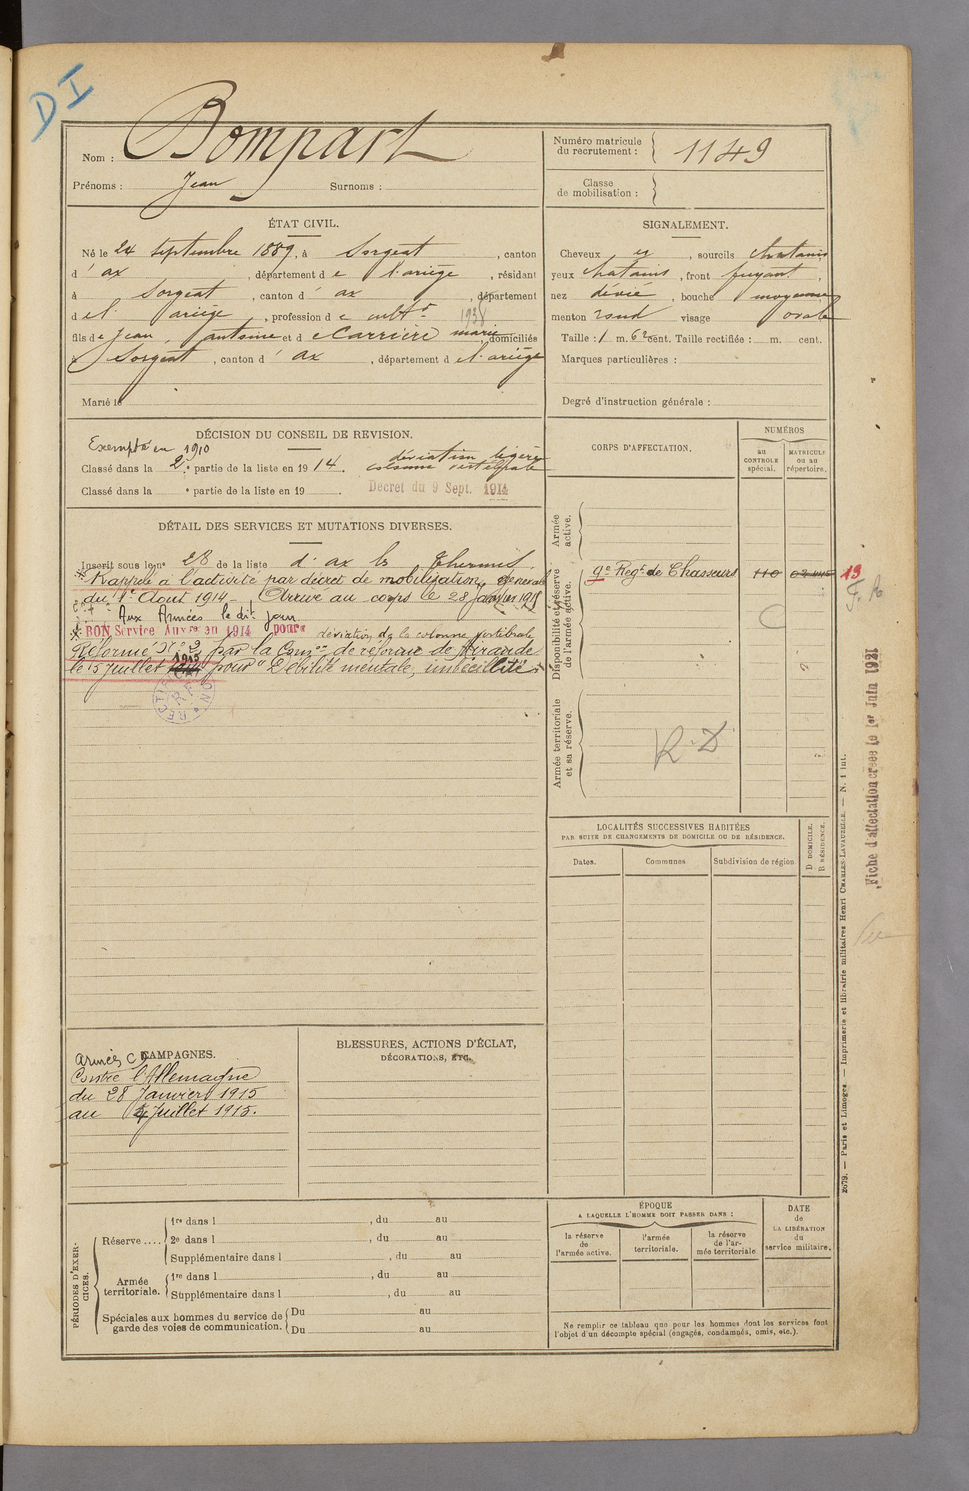 DI
Nom : Bompart
Prénoms : Jean Surnoms :
Numéro matricule du recrutement : 1149
Classe de mobilisation :
ÉTAT CIVIL.
Né le 24 septembre 1889, à Sorgeat, canton
d'ax, département de l'ariège, résidant
à Sorgeat, canton d'ax, département
de l'ariège, profession de cultr 1938
fils de Jean, antoine et de Carrière marie, domiciliés
à Sorgeat, canton d'ax, département de l'ariège
Marié le
SIGNALEMENT.
Cheveux et, sourcils chatains
yeux chatains, front fuyant,
nez dévié, bouche moyenne
menton rond visage ovale
Taille : 1 m. 62 cent. Taille rectifiée : m. cent.
Marques particulières :
Degré d'instruction générale :
DÉCISION DU CONSEIL DE REVISION.
Exempté en 1910
Classé dans la 2e partie de la liste en 1914. déviation légère colonne vertébrale
Classé dans la e partie de la liste en 19 . Décret du 9 Sept. 1914
DÉTAIL DES SERVICES ET MUTATIONS DIVERSES.
Inscrit sous le no 28 de la liste d'ax les Thermes
Rappelé à l'activité par décret de mobilisation générale
du 1er Aout 1914 - Arrivé au corps le 28 janvier 1915
Aux Armées le dit jour
BON Service Auxre en 1914 pour déviation de la colonne vertébrale
Réformé No 2 par la Comon de réforme de Mirande
le 15 juillet 1915 pour "Débilité mentale, imbécillité"
CORPS D'AFFECTATION.
NUMÉROS
au CONTROLE spécial.
MATRICULE ou au répertoire.
Armée active.
Disponibilité et réserve de l'armée active.
9e Regt de Chasseurs 110 13
Armée territoriale et sa réserve.
R.D
LOCALITÉS SUCCESSIVES HABITÉES
PAR SUITE DE CHANGEMENTS DE DOMICILE OU DE RÉSIDENCE.
Dates. Communes Subdivision de région.
D DOMICILE.
R RÉSIDENCE.
Fiche d'affectation créée le 1er Juin 1921
2679. — Paris et Limoges. — Imprimerie et librairie militaires Henri CHARLES-LAVAUZELLE. — N. 1 int.
CAMPAGNES.
Armées C D
Contre l'Allemagne
du 28 Janvier 1915
au Juillet 1915.
BLESSURES, ACTIONS D'ÉCLAT,
DÉCORATIONS, ETC.
PÉRIODES D'EXERCICES.
Réserve....
1re dans l , du au
2e dans l , du au
Supplémentaire dans l , du au
Armée territoriale.
1re dans l , du au
Supplémentaire dans l , du au
Spéciales aux hommes du service de garde des voies de communication.
Du au
Du au
ÉPOQUE
A LAQUELLE L'HOMME DOIT PASSER DANS :
la réserve de l'armée active.
l'armée territoriale.
la réserve de l'armée territoriale
DATE de LA LIBÉRATION du service militaire.
Ne remplir ce tableau que pour les hommes dont les services font
l'objet d'un décompte spécial (engagés, condamnés, omis, etc.).